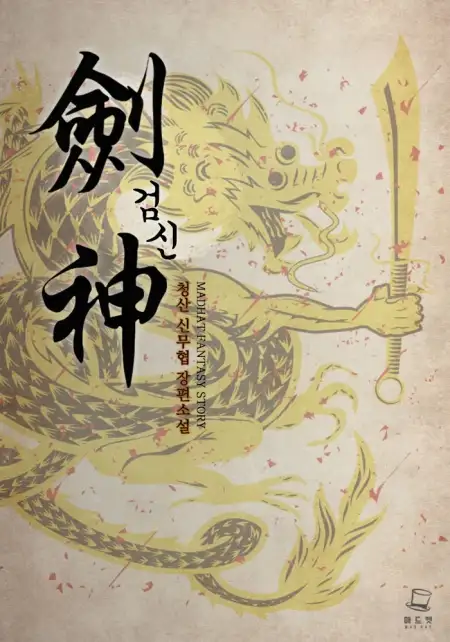 劍神
검신
청산 신무협 장편소설
MADHAT FANTASY STORY
매드햇